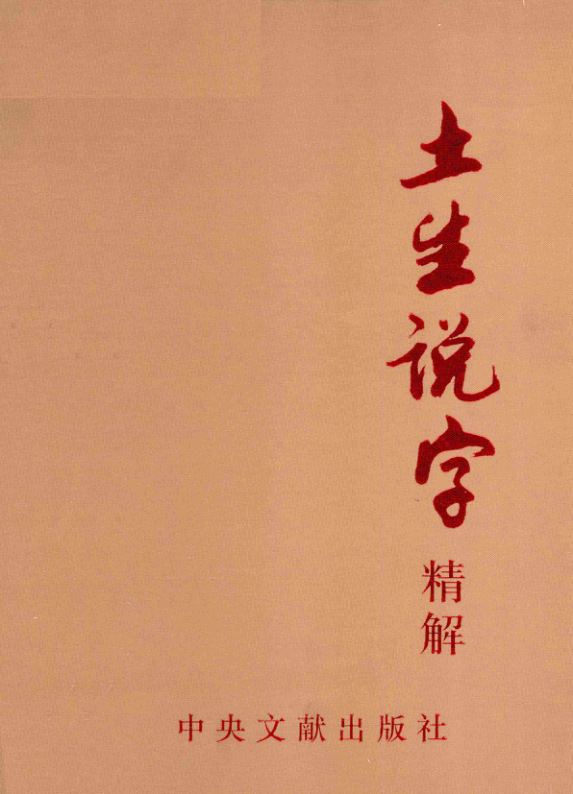 土生说字
精解
中央文献出版社